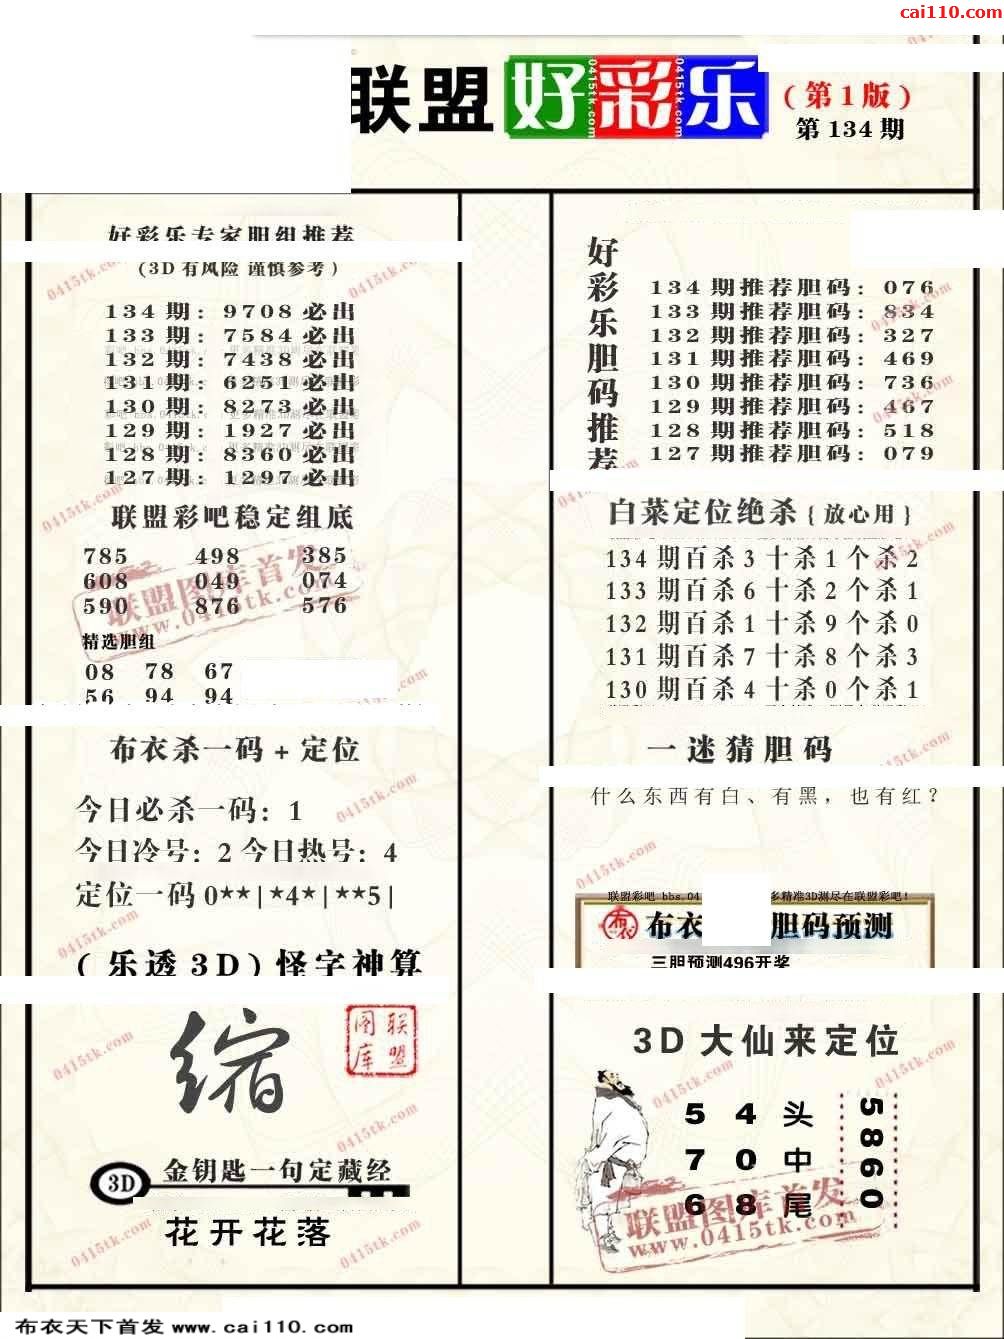 cai110.com
联盟 好彩乐 (第1版)
第134期
好彩乐专家胆组推荐
(3D有风险 谨慎参考)
134期: 9708必出
133期: 7584必出
132期: 7438必出
131期: 6251必出
130期: 8273必出
129期: 1927必出
128期: 8360必出
127期: 1297必出
联盟彩吧稳定组底
785 498 385
608 049 074
590 876 576
精选胆组
08 78 67
56 94 94
布衣杀一码+定位
今日必杀一码: 1
今日冷号: 2 今日热号: 4
定位一码 0**|*4*|**5|
(乐透3D)怪字神算
缩
联盟图库
3D 金钥匙一句定藏经
花开花落
好彩乐胆码推荐
134期推荐胆码: 076
133期推荐胆码: 834
132期推荐胆码: 327
131期推荐胆码: 469
130期推荐胆码: 736
129期推荐胆码: 467
128期推荐胆码: 518
127期推荐胆码: 079
白菜定位绝杀{放心用}
134期百杀3十杀1个杀2
133期百杀6十杀2个杀1
132期百杀1十杀9个杀0
131期百杀7十杀8个杀3
130期百杀4十杀0个杀1
一迷猜胆码
什么东西有白、有黑，也有红?
联盟彩吧 bbs.04 多精准3D测尽在联盟彩吧!
布衣 胆码预测
三胆预测496开奖
3D大仙来定位
5 4 头
7 0 中
6 8 尾
5860
联盟图库首发
www.0415tk.com
联盟图库首发
www.0415tk.com
0415tk.com
布衣天下首发 www.cai110.com